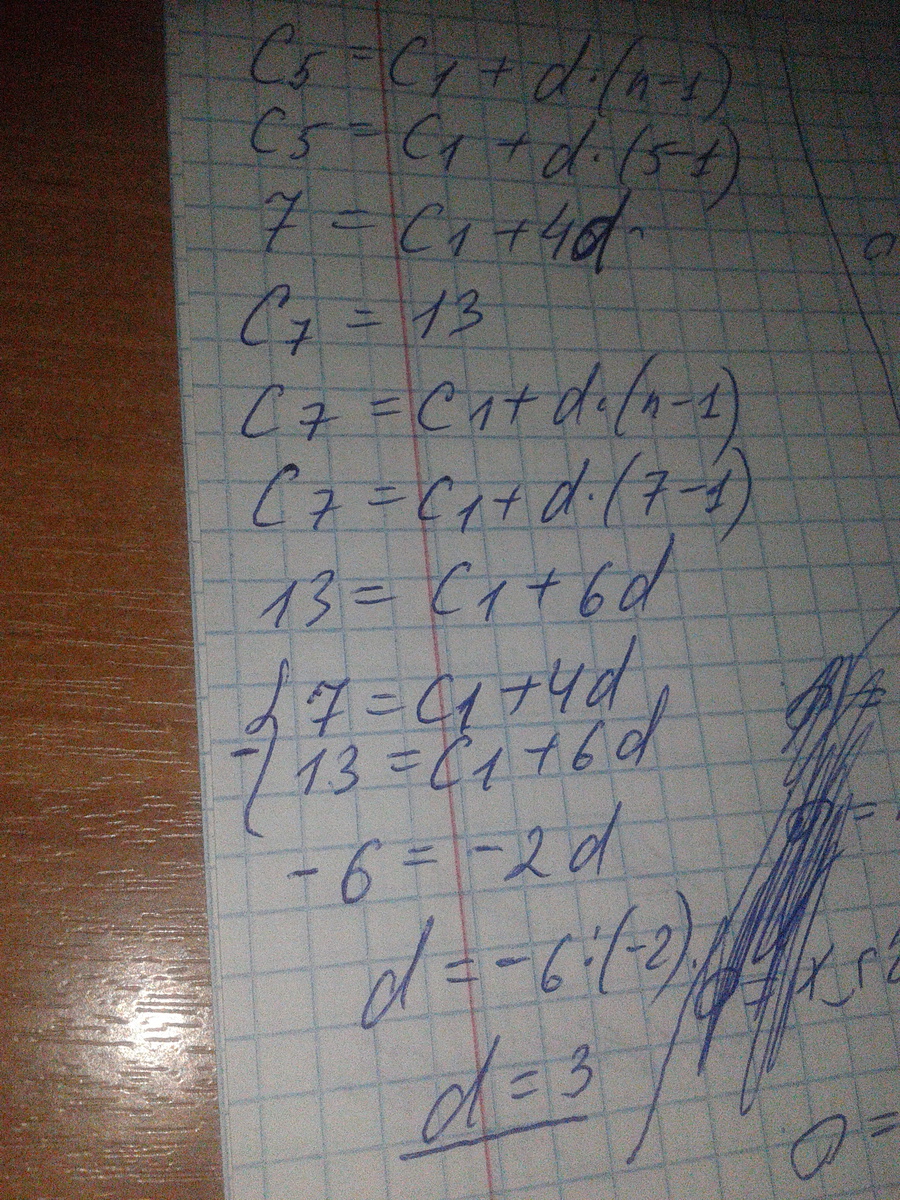 C5 = C1 + d·(n-1)
C5 = C1 + d·(5-1)
7 = C1 + 4d
C7 = 13
C7 = C1 + d·(n-1)
C7 = C1 + d·(7-1)
13 = C1 + 6d
{ 7 = C1 + 4d
- { 13 = C1 + 6d
-6 = -2d
d = -6:(-2)
d = 3